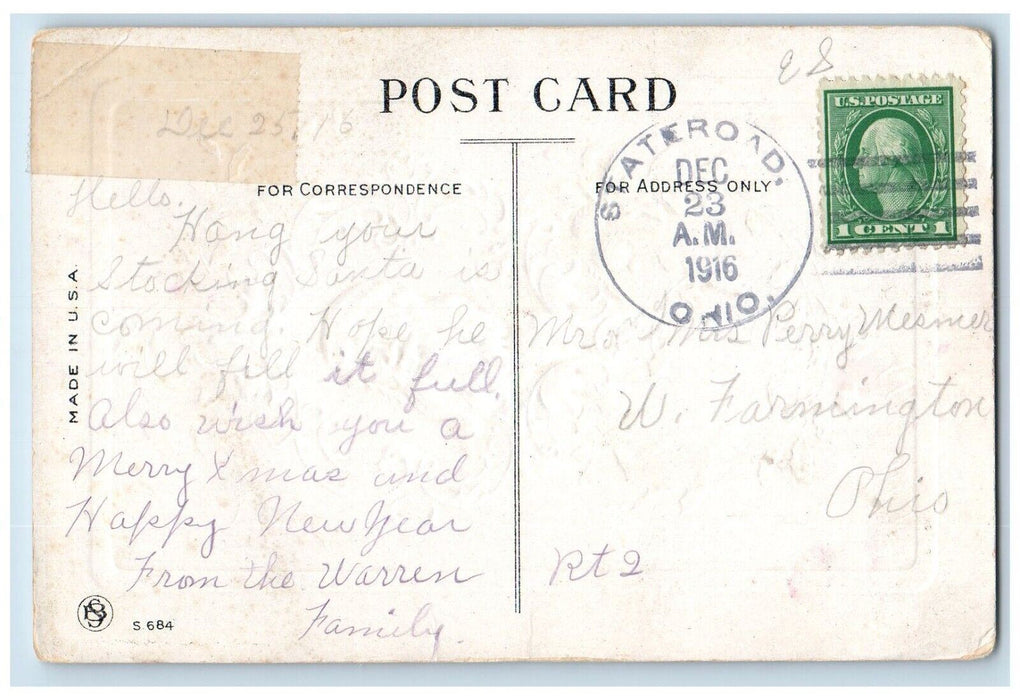 POST CARD
Dec 25, 16
FOR CORRESPONDENCE
FOR ADDRESS ONLY
Hello.
Hang your
Stocking Santa is
coming. Hope he
will fill it full.
Also wish you a
Merry Xmas and
Happy New Year
From the Warren
Family.
MADE IN U.S.A.
S. 684
STATEROAD.
DEC
23
A.M.
1916
OHIO.
U.S. POSTAGE
1 CENT 1
Mr & Mrs Perry Mesmer
W. Farmington
Ohio
Rt 2